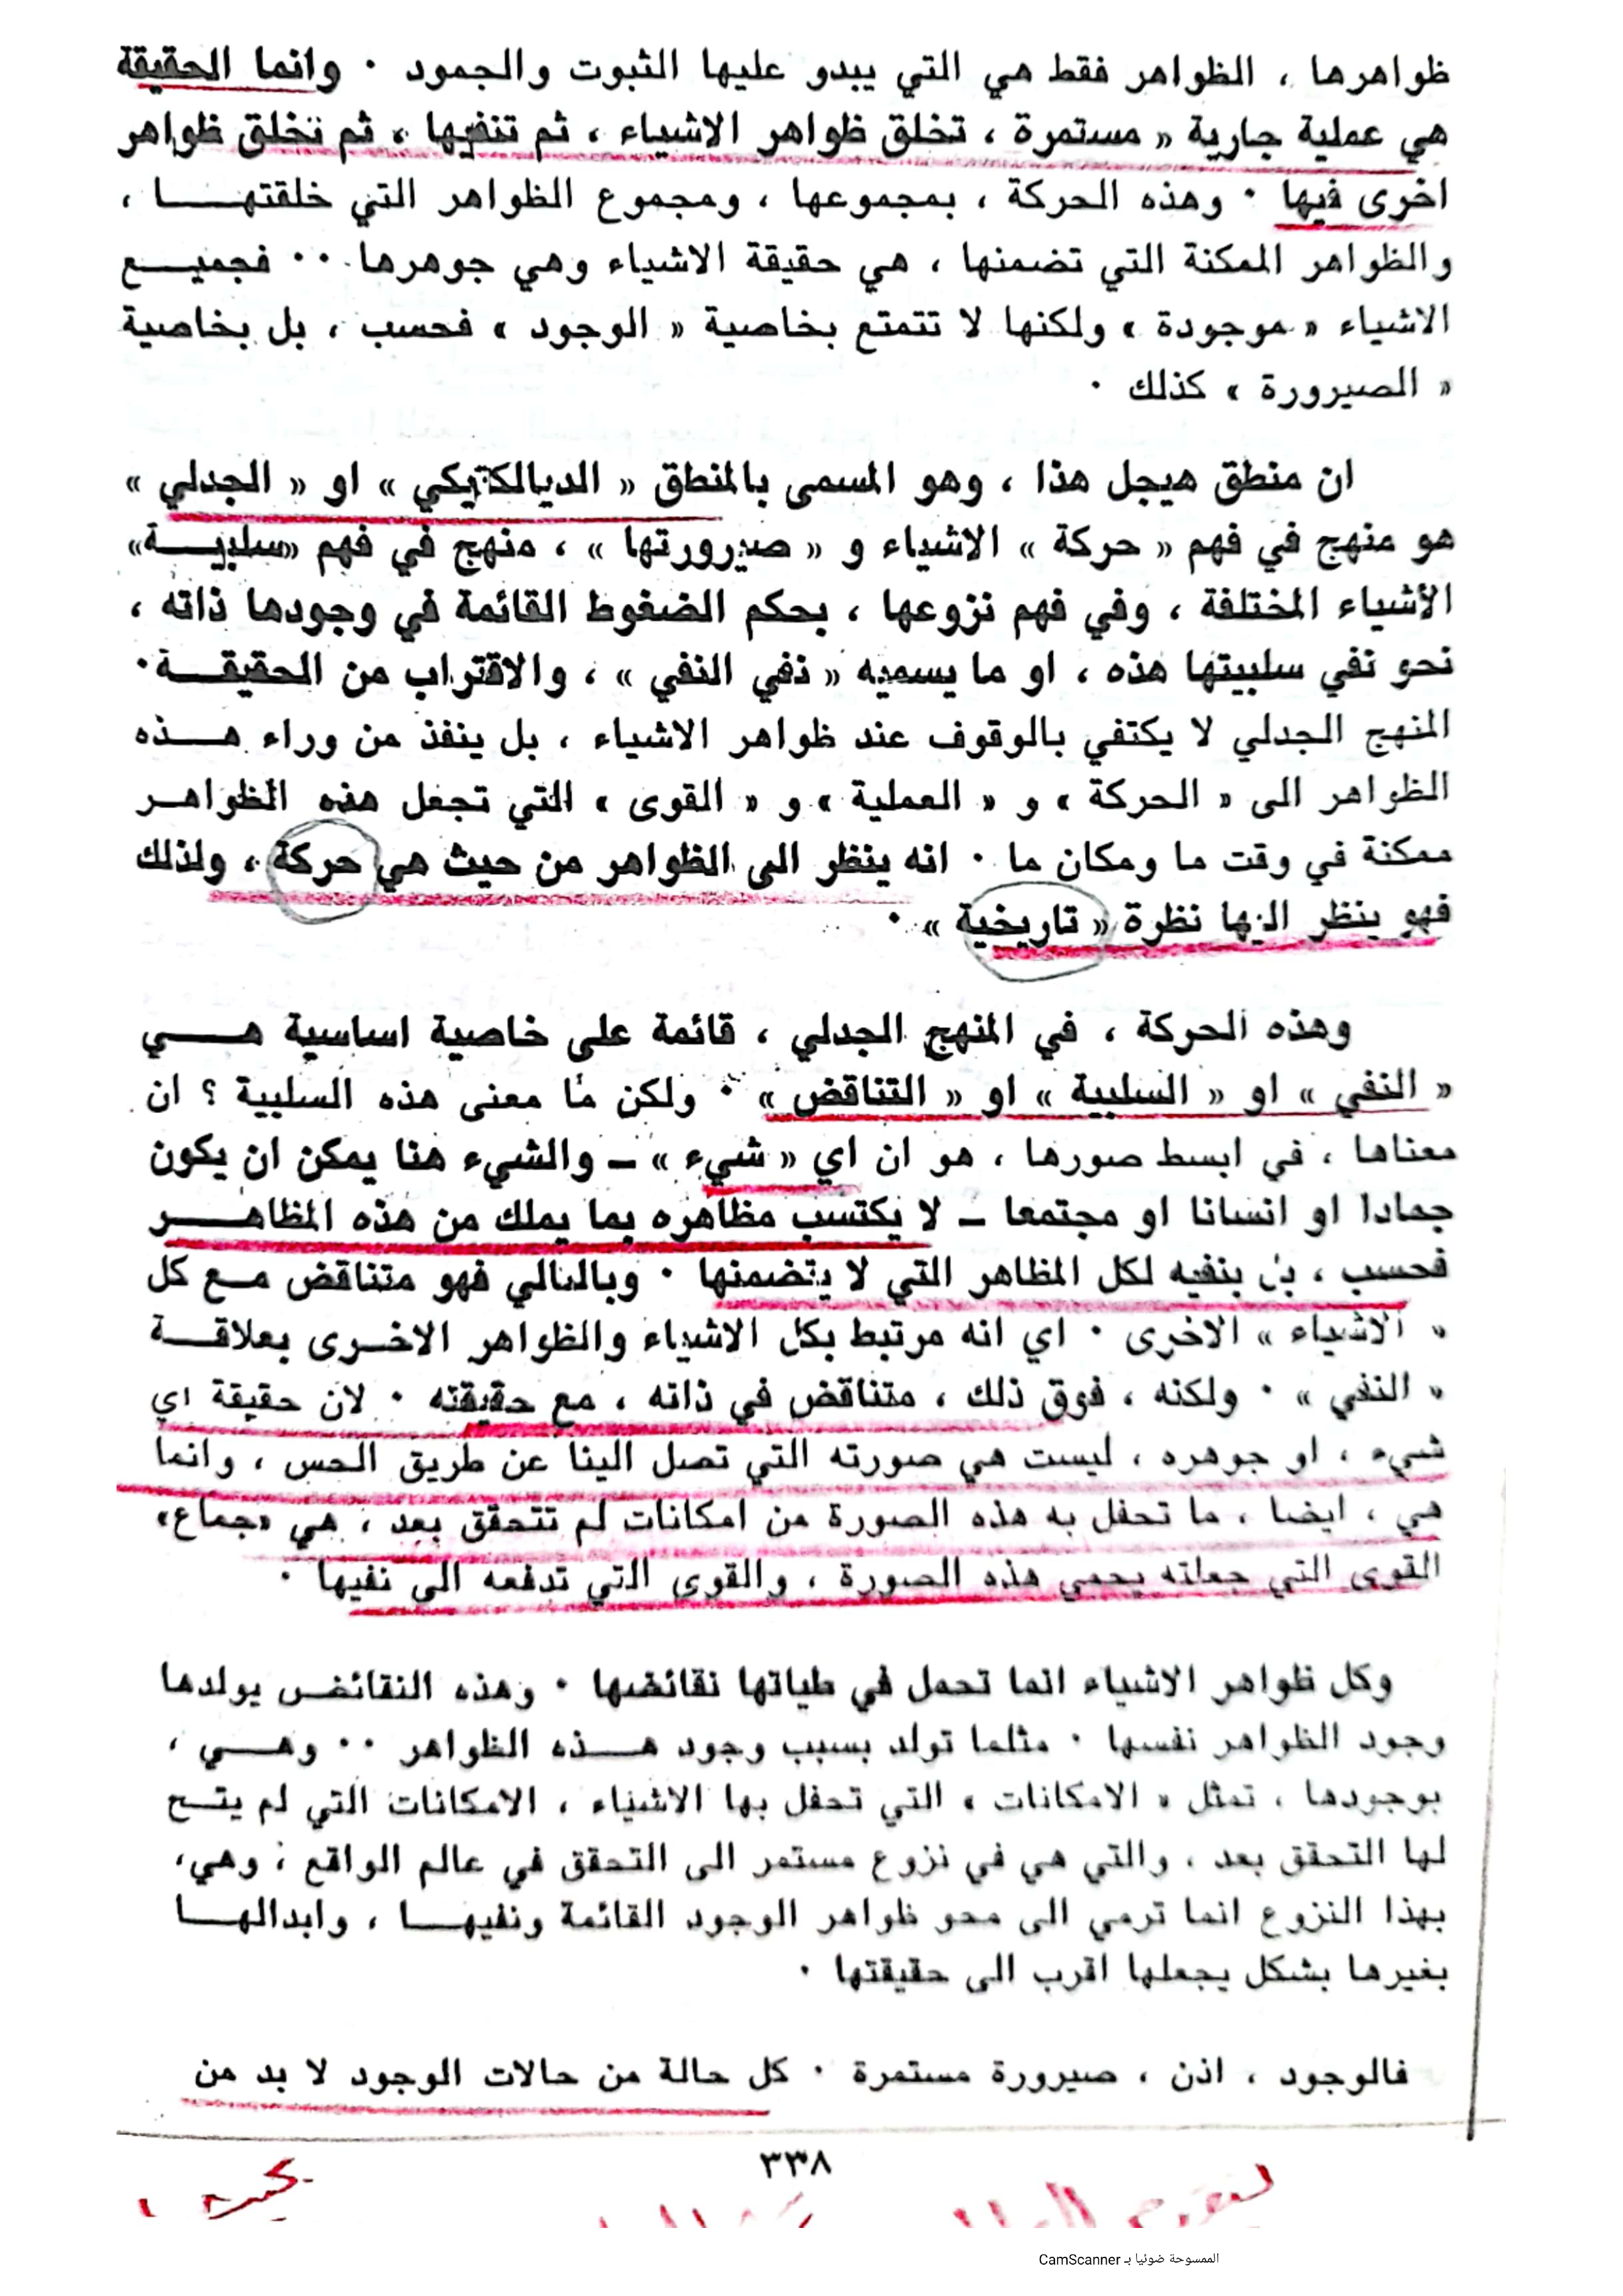 ظواهرها ، الظواهر فقط هي التي يبدو عليها الثبوت والجمود ٠ وانما الحقيقة
هي عملية جارية « مستمرة ، تخلق ظواهر الاشياء ، ثم تنفيها ، ثم تخلق ظواهر
اخرى فيها ٠ وهذه الحركة ، بمجموعها ، ومجموع الظواهر التي خلقتهـــا ،
والظواهر الممكنة التي تضمنها ، هي حقيقة الاشياء وهي جوهرها ٠٠ فجميـــع
الاشياء « موجودة » ولكنها لا تتمتع بخاصية « الوجود » فحسب ، بل بخاصية
« الصيرورة » كذلك ٠
ان منطق هيجل هذا ، وهو المسمى بالمنطق « الديالكتيكي » او « الجدلي »
هو منهج في فهم « حركة » الاشياء و « صيرورتها » ، منهج في فهم «سلبيـــة»
الأشياء المختلفة ، وفي فهم نزوعها ، بحكم الضغوط القائمة في وجودها ذاته ،
نحو نفي سلبيتها هذه ، او ما يسميه « نفي النفي » ، والاقتراب من الحقيقـــة٠
المنهج الجدلي لا يكتفي بالوقوف عند ظواهر الاشياء ، بل ينفذ من وراء هـــذه
الظواهر الى « الحركة » و « العملية » و « القوى » التي تجعل هذه الظواهـر
ممكنة في وقت ما ومكان ما ٠ انه ينظر الى الظواهر من حيث هي حركة ، ولذلك
فهو ينظر اليها نظرة « تاريخية » ٠
وهذه الحركة ، في المنهج الجدلي ، قائمة على خاصية اساسية هـــــي
« النفي » او « السلبية » او « التناقض » ٠ ولكن ما معنى هذه السلبية ؟ ان
معناها ، في ابسط صورها ، هو ان اي « شيء » ــ والشيء هنا يمكن ان يكون
جمادا او انسانا او مجتمعا ــ لا يكتسب مظاهره بما يملك من هذه المظاهـــر
فحسب ، بل بنفيه لكل المظاهر التي لا يتضمنها ٠ وبالتالي فهو متناقض مـع كل
« الاشياء » الاخرى ٠ اي انه مرتبط بكل الاشياء والظواهر الاخـرى بعلاقـــة
« النفي » ٠ ولكنه ، فوق ذلك ، متناقض في ذاته ، مع حقيقته ٠ لان حقيقة اي
شيء ، او جوهره ، ليست هي صورته التي تصل الينا عن طريق الحس ، وانما
هي ، ايضا ، ما تحفل به هذه الصورة من امكانات لم تتحقق بعد ، هي «جماع»
القوى التي جعلته يحمي هذه الصورة ، والقوى التي تدفعه الى نفيها ٠
وكل ظواهر الاشياء انما تحمل في طياتها نقائضها ٠ وهذه النقائض يولدها
وجود الظواهر نفسها ٠ مثلما تولد بسبب وجود هـــذه الظواهر ٠٠ وهـــي ،
بوجودها ، تمثل « الامكانات » التي تحفل بها الاشياء ، الامكانات التي لم يتـــح
لها التحقق بعد ، والتي هي في نزوع مستمر الى التحقق في عالم الواقع ؛ وهي،
بهذا النزوع انما ترمي الى محو ظواهر الوجود القائمة ونفيهـــا ، وابدالهـــا
بغيرها بشكل يجعلها اقرب الى حقيقتها ٠
فالوجود ، اذن ، صيرورة مستمرة ٠ كل حالة من حالات الوجود لا بد من
٣٣٨
الممسوحة ضوئيا بـ CamScanner